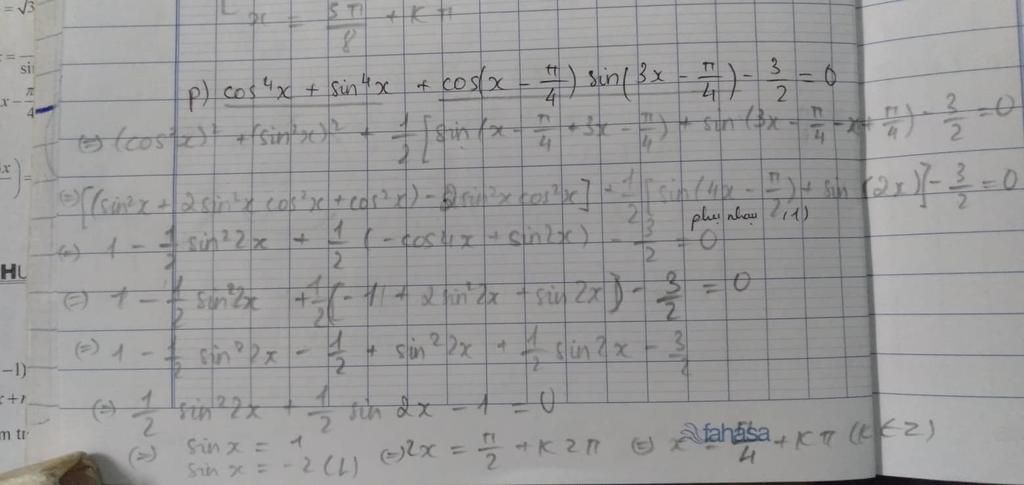 x = 5π/8 + kπ
p) cos⁴x + sin⁴x + cos(x - π/4) sin(3x - π/4) - 3/2 = 0
(=) (cos²x)² + (sin²x)² + 1/2 [sin(x - π/4 + 3x - π/4) + sin(3x - π/4 - x + π/4) - 3/2 = 0
(=) [(sin²x + 2sin²x cos²x + cos²x) - 2sin²x cos²x] + 1/2 [sin(4x - π/2) + sin(2x)] - 3/2 = 0
phụ nhau (1)
(=) 1 - 1/2 sin²2x + 1/2 (-cos4x + sin2x) - 3/2 = 0
(=) 1 - 1/2 sin²2x + 1/2 (-1 + 2sin²2x + sin2x) - 3/2 = 0
(=) 1 - 1/2 sin²2x - 1/2 + sin²2x + 1/2 sin2x - 3/2
(=) 1/2 sin²2x + 1/2 sin 2x - 1 = 0
(=) sin x = 1
sin x = -2 (L)
(=) 2x = π/2 + k2π (=) x = π/4 + kπ (k∈Z)
fahasa
= √3
sin
x - π/4
HU
-1)
m tr